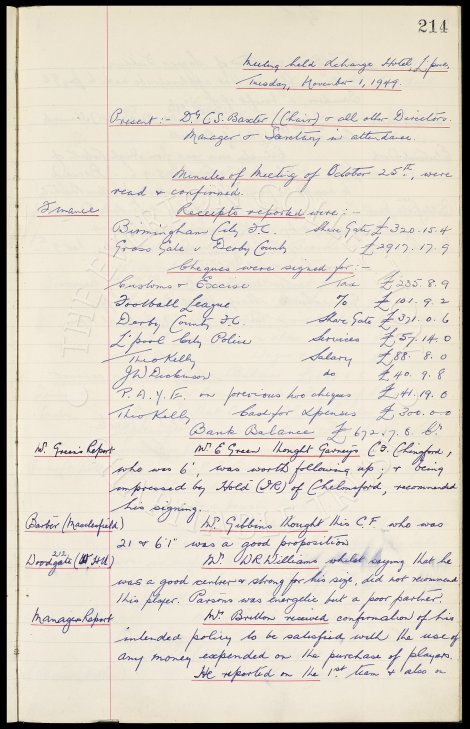 214
Meeting held Exchange Hotel, L'pool,
Tuesday, November 1, 1949.
Present:- Dr C.S. Baxter (Chair) & all other Directors.
Manager & Secretary in attendance.
Minutes of Meeting of October 25th, were
read & confirmed.
Finance Receipts reported were:-
Birmingham City F.C. Share Gate £320.15.4
Gross Gate v Derby County £2917.17.9
Cheques were signed for:-
Customs & Excise Tax £235.8.9
Football League % £101.9.2
Derby County F.C. Share Gate £371.0.6
L'pool City Police Services £57.14.0
Theo Kelly Salary £88.8.0
J.W. Dickinson do £40.9.8
P.A.Y.E. on previous two cheques £41.19.0
Theo Kelly Cash for Expenses £300.0.0
Bank Balance £672.7.8
Mr. Green's Report Mr. E Green thought Garveys C.F. Chingford,
who was 6', was worth following up; & being
impressed by Hold (I.R) of Chelmsford, recommended
his signing.
Barber (Macclesfield) Mr. Gibbins thought this C.F. who was
21 & 6'1" was a good proposition
Woodgate Mr. D.R. Williams whilst saying that he
was a good centre & strong for his size, did not recommend
this player. Parsons was energetic but a poor partner.
Manager's Report Mr. Britton received confirmation of his
intended policy to be satisfied with the use of
any money expended on the purchase of players.
He reported on the 1st team & also on